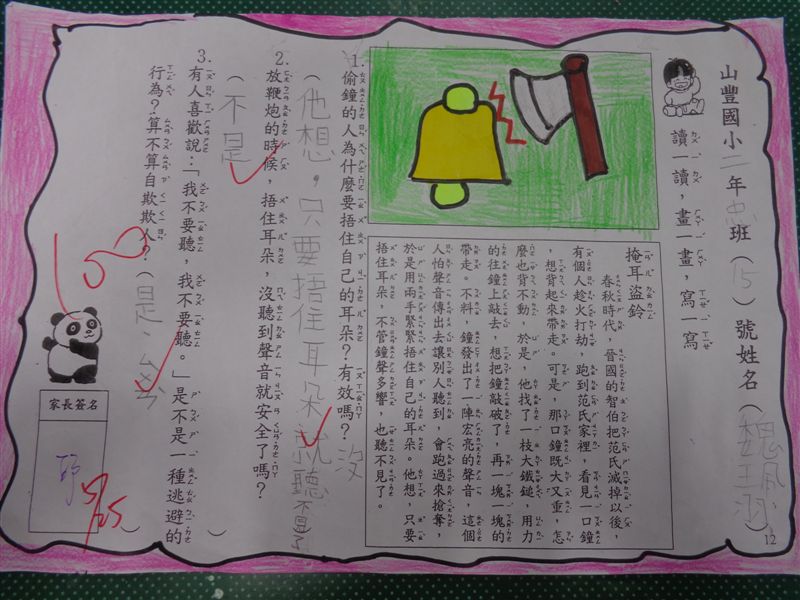 山豐國小二年忠班（15）號姓名（
讀一讀，畫一畫，寫一寫
掩耳盜鈴
春秋時代，晉國的智伯把范氏滅掉以後，
有個人趁火打劫，跑到范氏家裡，看見一口鐘
，想背起來帶走。可是，那口鐘既大又重，怎
麼也背不動，於是，他找了一枝大鐵鎚，用力
的往鐘上敲去，想把鐘敲破了，再一塊一塊的
帶走。不料，鐘發出了一陣宏亮的聲音，這個
人怕聲音傳出去讓別人聽到，會跑過來搶奪，
於是用兩手緊緊捂住自己的耳朵。他想，只要
捂住耳朵，不管鐘聲多響，也聽不見了。
1.偷鐘的人為什麼要捂住自己的耳朵？有效嗎？沒
（他想，只要捂住耳朵就聽不見了
2.放鞭炮的時候，捂住耳朵，沒聽到聲音就安全了嗎？
（不是）
3.有人喜歡說：「我不要聽，我不要聽。」是不是一種逃避的
行為？算不算自欺欺人？（是、
家長簽名
12